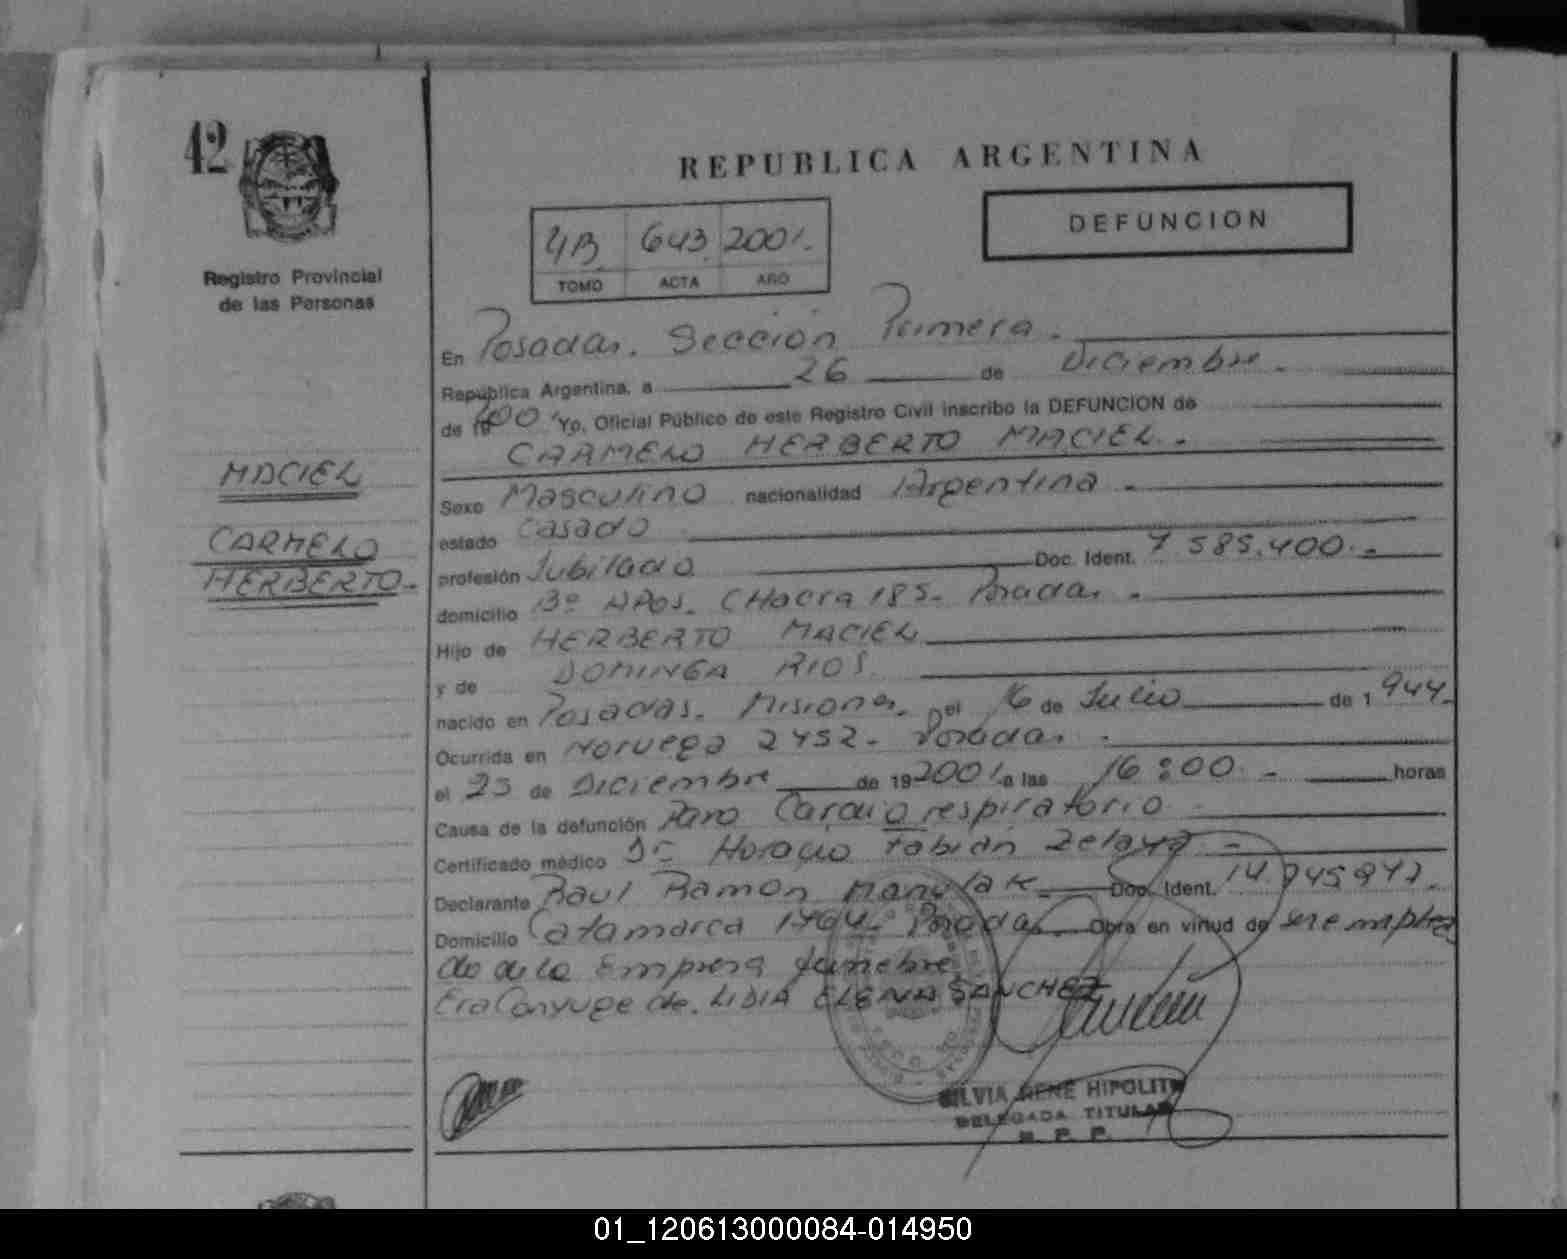 42
Registro Provincial
de las Personas
REPUBLICA ARGENTINA
DEFUNCION
4B 643 2001.
TOMO ACTA AÑO
En Posadas. Sección Primera.
República Argentina, a 26 de Diciembre.
de 19 2001 Yo, Oficial Público de este Registro Civil inscribo la DEFUNCION de
CARMELO HERBERTO MACIEL.-
MACIEL
CARMELO
HERBERTO.-
Sexo Masculino nacionalidad Argentina.-
estado Casado
profesión Jubilado Doc. Ident. 7.585.400.-
domicilio Bº APOS. CHacra 185. Posadas.-
Hijo de HERBERTO MACIEL
y de DOMINGA RIOS.
nacido en Posadas. Misiones. el 16 de Julio de 1944.
Ocurrida en Noruega 2452. Posadas.
el 25 de Diciembre de 19 2001. a las 16:00.- horas
Causa de la defunción Paro Cardiorespiratorio
Certificado médico Dr Horacio Fabián Zelaya.-
Declarante Raul Ramon Doc. Ident. 14.945.947.
Domicilio Catamarca 1764. Posadas. Obra en virtud de ser emplea
do de la Empresa funebre
Era Conyuge de. LIDIA ELENA SANCHEZ
SILVIA RENE HIPOLITO
DELEGADA TITULAR
R. P. P.
01_120613000084-014950